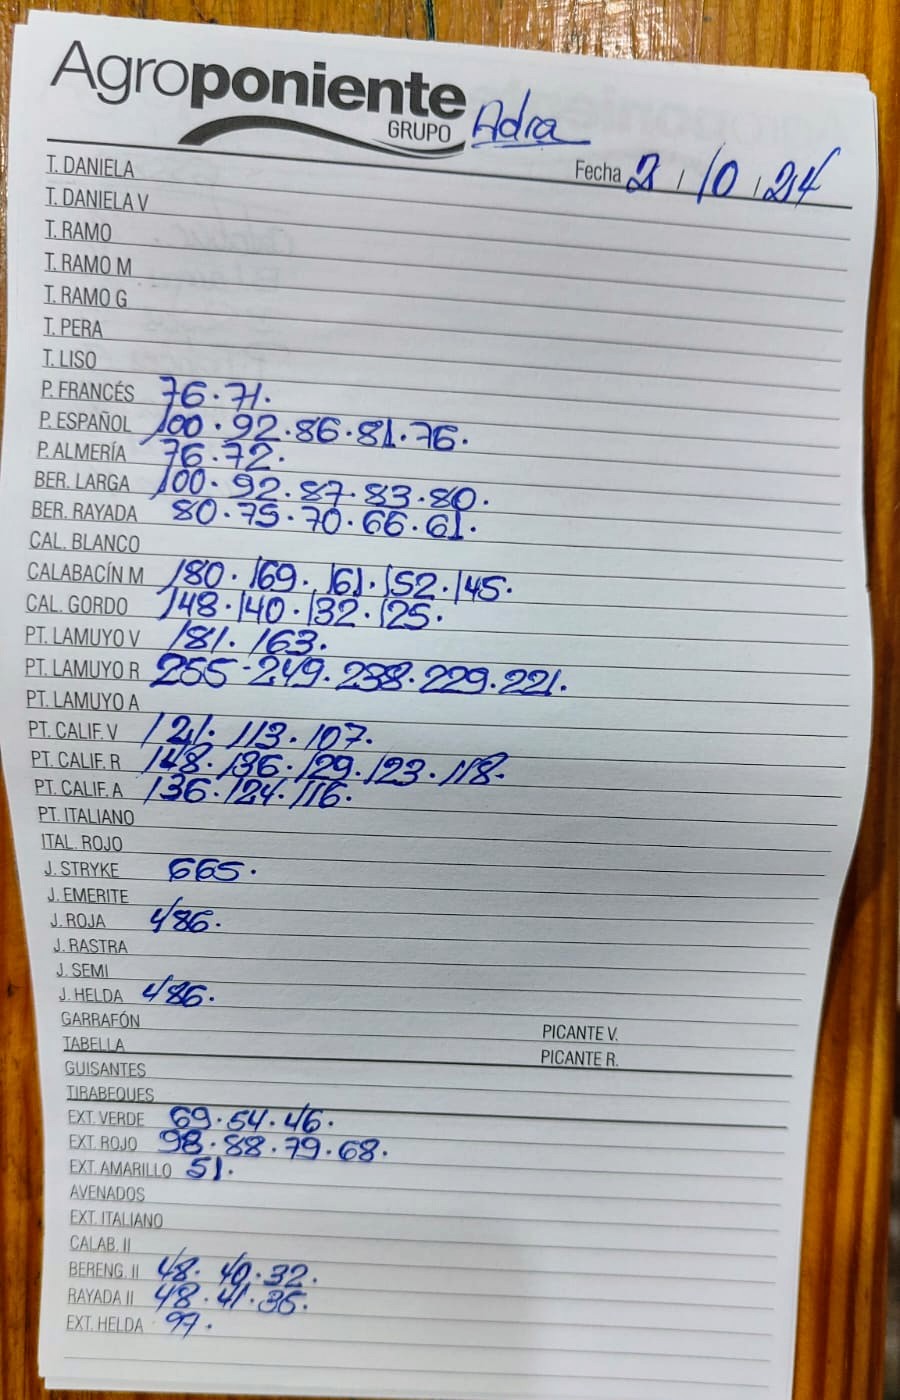 Agroponiente
GRUPO Adra
Fecha 2 / 10 / 24
T. DANIELA
T. DANIELA V
T. RAMO
T. RAMO M
T. RAMO G
T. PERA
T. LISO
P. FRANCÉS 76. 71.
P. ESPAÑOL 100. 92. 86. 81. 76.
P. ALMERÍA 76. 72.
BER. LARGA 100. 92. 87. 83. 80.
BER. RAYADA 80. 75. 70. 66. 61.
CAL. BLANCO
CALABACÍN M 180. 169. 161. 152. 145.
CAL. GORDO 148. 140. 132. 125.
PT. LAMUYO V 181. 163.
PT. LAMUYO R 255. 249. 238. 229. 221.
PT. LAMUYO A
PT. CALIF. V 121. 113. 107.
PT. CALIF. R 148. 136. 129. 123. 118.
PT. CALIF. A 136. 124. 116.
PT. ITALIANO
ITAL. ROJO
J. STRYKE 665.
J. EMERITE
J. ROJA 486.
J. RASTRA
J. SEMI
J. HELDA 486.
GARRAFÓN PICANTE V.
TABELLA PICANTE R.
GUISANTES
TIRABEQUES
EXT. VERDE 69. 54. 46.
EXT. ROJO 98. 88. 79. 68.
EXT. AMARILLO 51.
AVENADOS
EXT. ITALIANO
CALAB. II
BERENG. II 48. 40. 32.
RAYADA II 48. 41. 36.
EXT. HELDA 97.